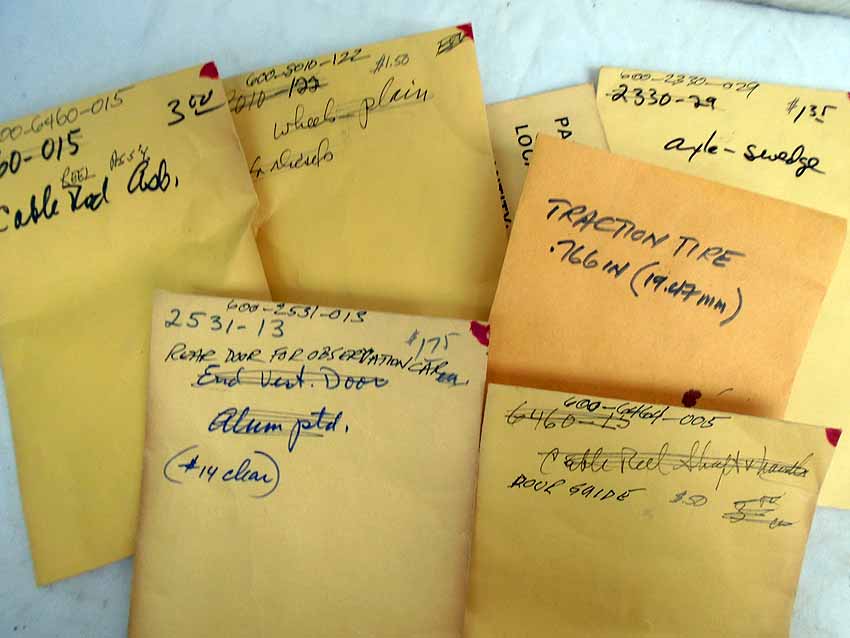 600-6460-015
60-015
3.00
REEL ASS'Y
Cable Rod Asb.
600-5010-122
$1.50
wheels-plain
PA
LO
600-2330-029
2330-29
$1.35
axle-swedge
TRACTION TIRE
.766 IN (19.47mm)
600-2531-013
2531-13
$1.75
REAR DOOR FOR OBSERVATION CAR
End Vest. Door
Alum ptd.
(#14 clear)
600-6464-005
6460-15
Cable Reel Shaft & handle
DOOR GUIDE
$.50